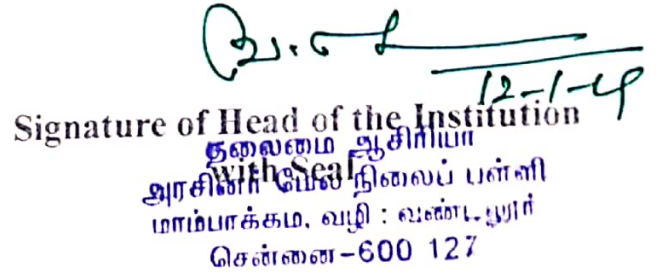 12-1-19
Signature of Head of the Institution
with Seal
தலைமை ஆசிரியர்
அரசினர் மேல் நிலைப் பள்ளி
மாம்பாக்கம், வழி : வண்டலூர்
சென்னை-600 127